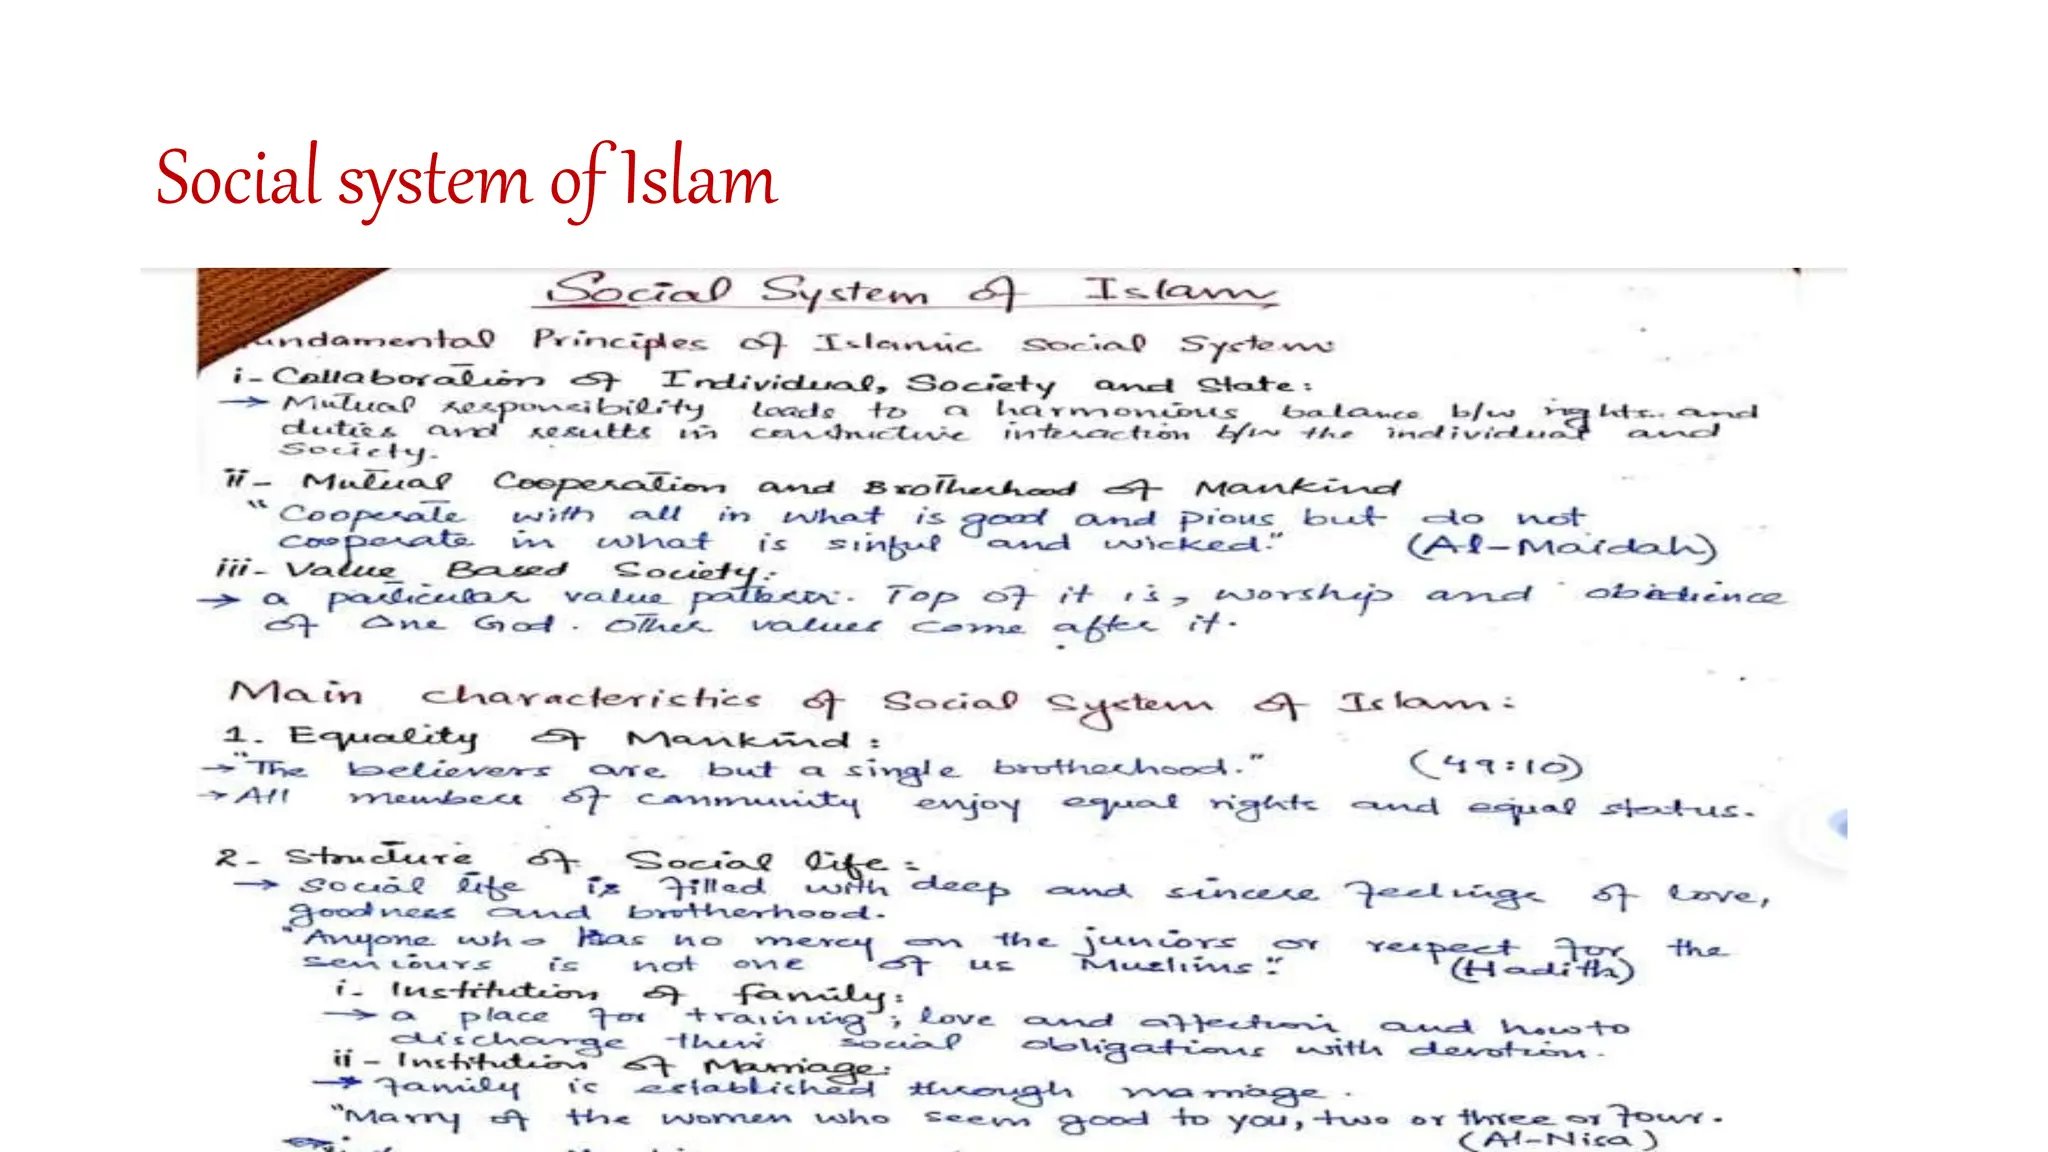 Social system of Islam
Social System of Islam
undamental Principles of Islamic social System:
i- Collaboration of Individual, Society and State:
→ Mutual responsibility leads to a harmonious balance b/w rights and
duties and results in constructive interaction b/w the individual and
Society.
ii- Mutual Cooperation and Brotherhood of Mankind
"Cooperate with all in what is good and pious but do not
cooperate in what is sinful and wicked." (Al-Maidah)
iii- Value Based Society:
→ a particular value pattern. Top of it is, worship and obedience
of One God. Other values come after it.
Main characteristics of Social System of Islam:
1. Equality of Mankind:
→ "The believers are but a single brotherhood." (49:10)
→ All members of community enjoy equal rights and equal status.
2- Structure of Social life:
→ social life is filled with deep and sincere feelings of love,
goodness and brotherhood.
"Anyone who has no mercy on the juniors or respect for the
seniours is not one of us Muslims." (Hadith)
i- Institution of family:
→ a place for training; love and affection and how to
discharge their social obligations with devotion.
ii- Institution of Marriage:
→ family is established through marriage.
"Marry of the women who seem good to you, two or three or four.
(Al-Nisa)